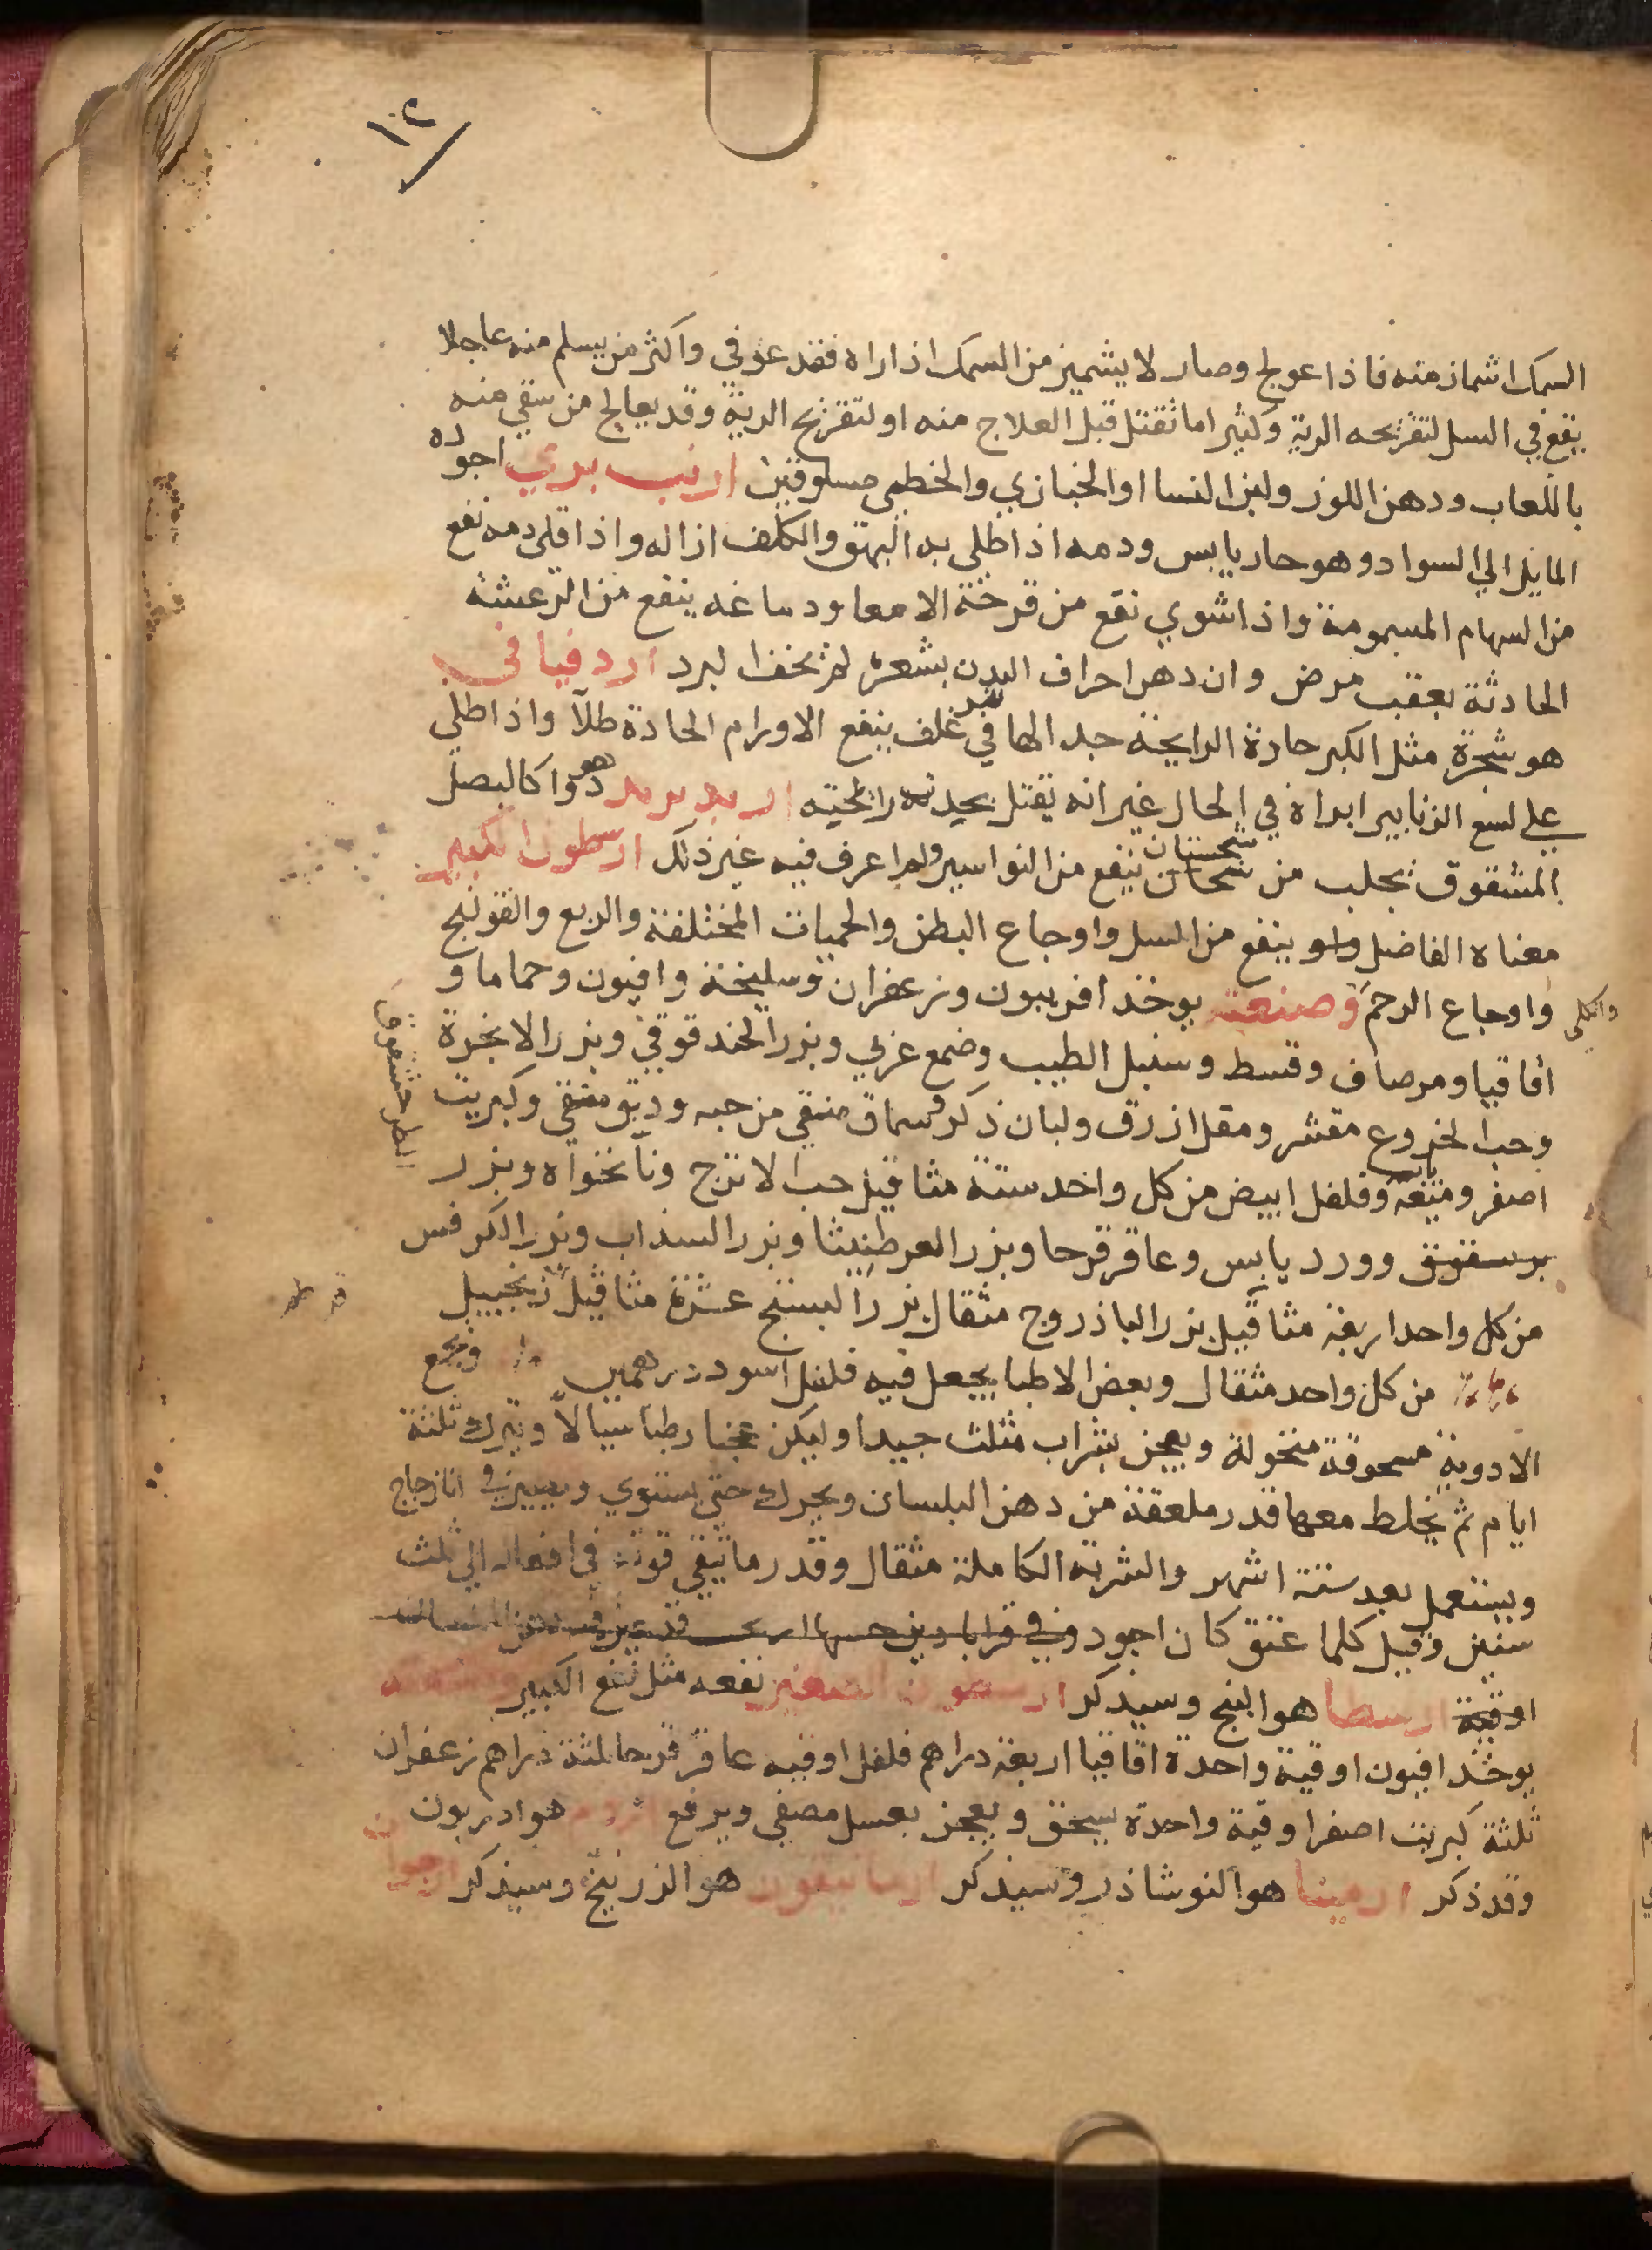 ١٢
السمك اشماز منه فاذا عولج وصار لا يشميز من السمك اذا راه فقد عوفي واكثر من يسلم منه عاجلا
يقع في السل لتقريحه الرية وكثير اما تقتل قبل العلاج منه او لتقريح الرية وقد يعالج من سقي منه
باللعاب ودهن اللوز ولبن النسا او الخبازي والخطمي مسلوقين ارنب بري اجوده
المايل الي السواد وهو حار يابس ودمه اذا طلي به البهق والكلف ازاله واذا قلي دمه نفع
من السهام المسمومة واذا شوي نفع من قرحة الامعا ودماغه ينفع من الرعشة
الحادثة بعقب مرض وان دهن احراف البدن بشعره لم يخف البرد ارد فيا في
هو شجرة مثل الكبر حارة الرايحة جدا لها في غلف ينفع الاورام الحادة طلآ واذا طلي
علي لسع الزنابير ابراه في الحال غير انه يقتل بحدته رائحته اربد بريد هو دوا كالبصل
المشقوق يجلب من سجستان ينفع من النواسير ولم اعرف فيه غير ذلك ارسطون الكبير
معناه الفاضل ينفع من السل واوجاع البطن والحميات المختلفة والربع والقولنج
والكلى
واوجاع الرحم وصنعته يوخد افربيون وزعفران وسليخة وافيون وحماما و
اقاقيا ومر صاف وقسط وسنبل الطيب وصمغ عربي وبزر الحندقوقي وبزر الانجرة
وحب الخروع مقشر ومقل ازرق ولبان ذكر وسماق منقي من حبه ودبق منقي وكبريت
اصفر وميعة وفلفل ابيض من كل واحد ستة مثاقيل حب الاترج ونانخواه وبزر
برسقوبق وورد يابس وعاقرقرحا وبزر العرطنيثا وبزر السذاب وبزر الكرفس
من كل واحد اربعة مثاقيل بزر الباذروج مثقال بزر البنج عشرة مثاقيل زنجبيل
من كل واحد مثقال وبعض الاطبا يجعل فيه فلفل اسود درهمين وتجمع
الادوية مسحوقة منخولة ويعجن بشراب مثلث جيدا وليكن عجنا رطبا سيالا ويترك ثلثة
ايام ثم يخلط معها قدر ملعقة من دهن البلسان ويحرك حتي يستوي ويصير في انا زجاج
ويستعمل بعد ستة اشهر والشربة الكاملة مثقال وقدر ما تبقي قوته في افعاله الي ثلث
سنين وقيل كلما عتق كان اجود وفي قراباذين
اوقية ارسطا هو البنج وسيذكر ارسطون الصغير نفعه مثل نفع الكبير
يوخذ افيون اوقية واحدة اقاقيا اربعة دراهم فلفل اوقيه عاقرقرحا ثلثة دراهم زعفران
ثلثة كبريت اصفر اوقية واحدة يسحق ويعجن بعسل مصفي ويرفع هو ادريون
وقد ذكر ارمينا هو النوشاذر وسيذكر ارسانيقون هو الزرنيخ وسيذكر